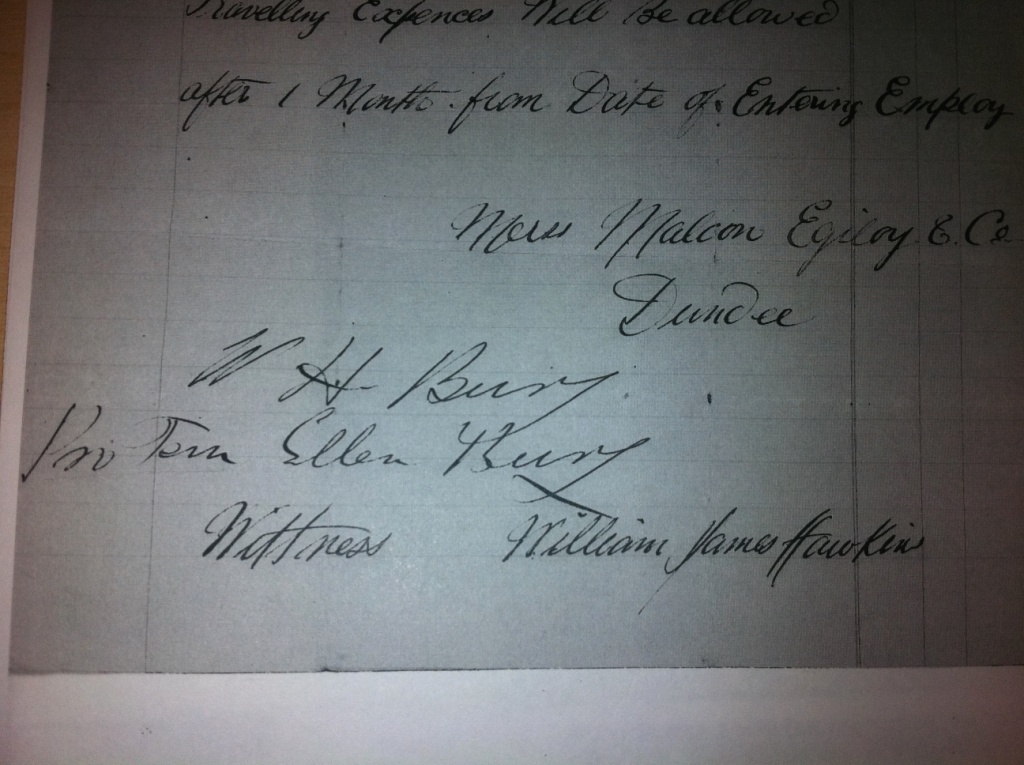 Travelling Expences Will Be allowed
after 1 Month from Date of Entering Employ
Merss Malcon Egiloy & Co
Dundee
W H Bury
Pro Tem Ellen Bury
Wittness William James Hawkins